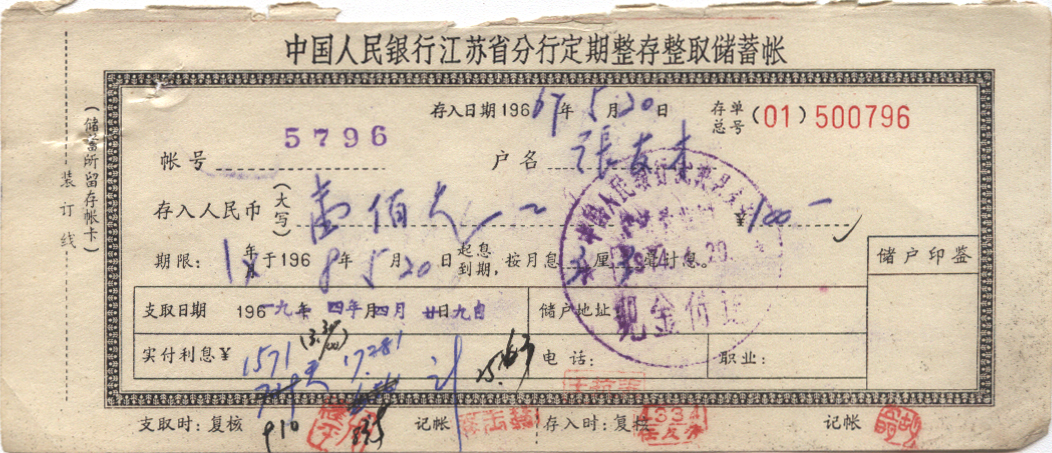 中国人民银行江苏省分行定期整存整取储蓄帐
(储蓄所留存帐卡)
装订线
存入日期1967年5月20日
存单总号(01)500796
帐号 5796
户名 張友木
存入人民币(大写)壹佰元 ¥100-
期限:1年于1968年5月20日起息到期,按月息3厘3毫计息。
储户印鉴
支取日期 196 年四月廿九日
储户地址
现金付讫
实付利息¥ 1571 17.281
(3.3‰)
25.63
电话:
职业:
910
支取时:复核
记帐
存入时:复核
4334
记帐